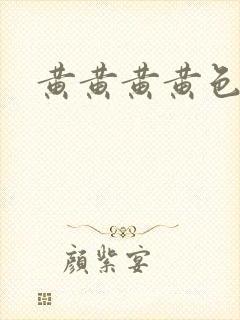 黄黄黄黄色
顏紫宴